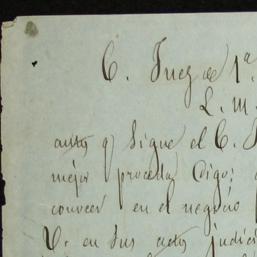 C. Juez de 1ª
L. M.
autos q sigue el C. J
mejor proceda digo:
convcer en el negocio
V. en sus actos judici